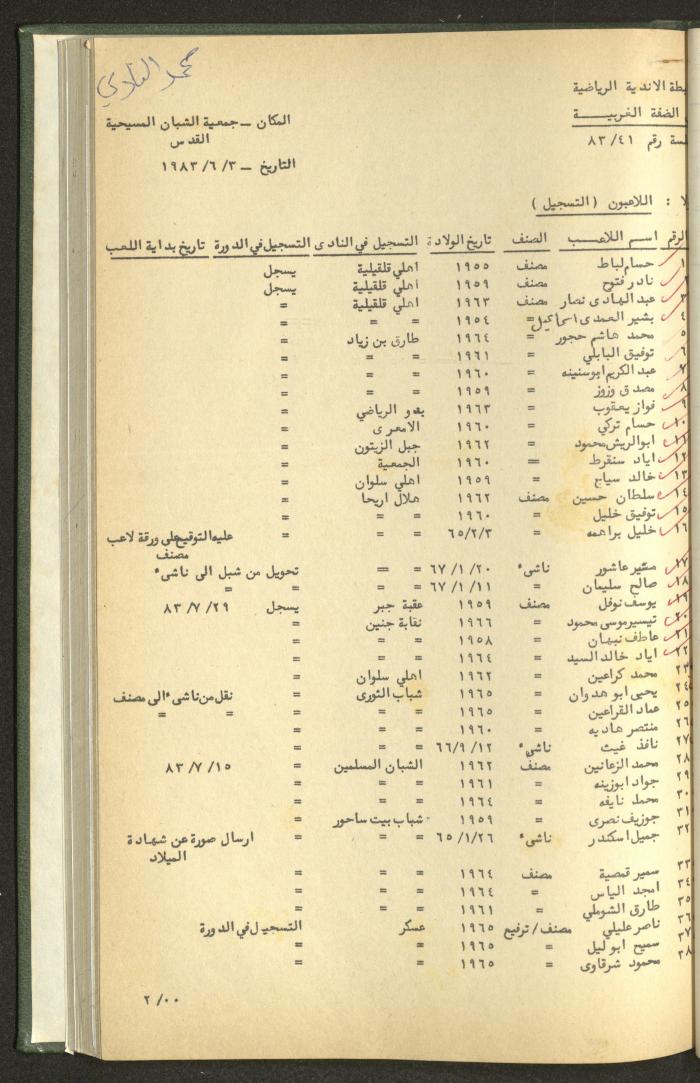 محمد
بطة الاندية الرياضية
الضفة الغربيــــة
المكان ــ جمعية الشبان المسيحية
سة رقم ٨٣/٤١
القدس
التاريخ ــ ١٩٨٣/٦/٣
لا : اللاعبون (التسجيل)
الرقم اســم اللاعــب الصنف تاريخ الولادة التسجيل في النادى التسجيل في الدورة تاريخ بداية اللعب
١ حسام لباط مصنف ١٩٥٥ اهلي قلقيلية يسجل
نادر فتوح مصنف ١٩٥٩ اهلي قلقيلية يسجل
٣ عبد الهادى نصار مصنف ١٩٦٣ اهلي قلقيلية =
٤ بشير العمدى اسماعيل = ١٩٥٤ = = =
٥ محمد هاشم حجور = ١٩٦٤ طارق بن زياد =
٦ توفيق البابلي = ١٩٦١ = = =
٧ عبد الكريم ابوسنينه = ١٩٦٠ = = =
٨ مصدق وزوز = ١٩٥٩ = = =
٩ فواز يعقوب = ١٩٦٣ بدو الرياضي =
١٠ حسام تركي = ١٩٦٠ الامعرى =
١١ ابوالريش محمود = ١٩٦٢ جبل الزيتون =
١٢ اياد سنقرط = ١٩٦٠ الجمعية =
١٣ خالد سياج = ١٩٥٩ اهلي سلوان =
١٤ سلطان حسين مصنف ١٩٦٢ هلال اريحا =
١٥ توفيق خليل = ١٩٦٠ = = =
١٦ خليل براهمه = ٦٥/٢/٣ = = = عليه التوقيع على ورقة لاعب
مصنف
١٧ عاشور ناشىء ٦٧/١/٢٠ = = تحويل من شبل الى ناشىء
١٨ صالح سليمان = ٦٧/١/١١ = = = =
١٩ يوسف نوفل مصنف ١٩٥٩ عقبة جبر يسجل ٨٣/٧/٢٩
٢٠ تيسير موسى محمود = ١٩٦٦ نقابة جنين =
٢١ عاطف نبهان = ١٩٥٨ = = =
٢٢ اياد خالد السيد = ١٩٦٤ = = =
٢٣ محمد كراعين = ١٩٦٢ اهلي سلوان =
٢٤ يحيى ابو هدوان = ١٩٦٥ شباب الثورى = نقل من ناشىء الى مصنف
٢٥ عماد القراعين = ١٩٦٥ = = = = =
٢٦ منتصر هاديه = ١٩٦٠ = = =
٢٧ نافذ غيث ناشىء ٦٦/٩/١٢ = = =
٢٨ محمد الزعانين مصنف ١٩٦٢ الشبان المسلمين = ٨٣/٧/١٥
٢٩ جواد ابوزينه = ١٩٦١ = = =
٣٠ محمد نايفه = ١٩٦٤ = = =
٣١ جوزيف نصرى = ١٩٥٩ شباب بيت ساحور =
٣٢ جميل اسكندر ناشىء ٦٥/١/٢٦ = = = ارسال صورة عن شهادة
الميلاد
٣٣ سمير قمصية مصنف ١٩٦٤ = = =
٣٤ امجد الياس = ١٩٦٤ = = =
٣٥ طارق الشوملي = ١٩٦١ = = =
٣٦ ناصر عليلي مصنف/ترفيع ١٩٦٥ عسكر التسجيل في الدورة
٣٧ سميح ابو ليل = ١٩٦٥ = =
٣٨ محمود شرقاوى = ١٩٦٥ = =
٢/٠٠